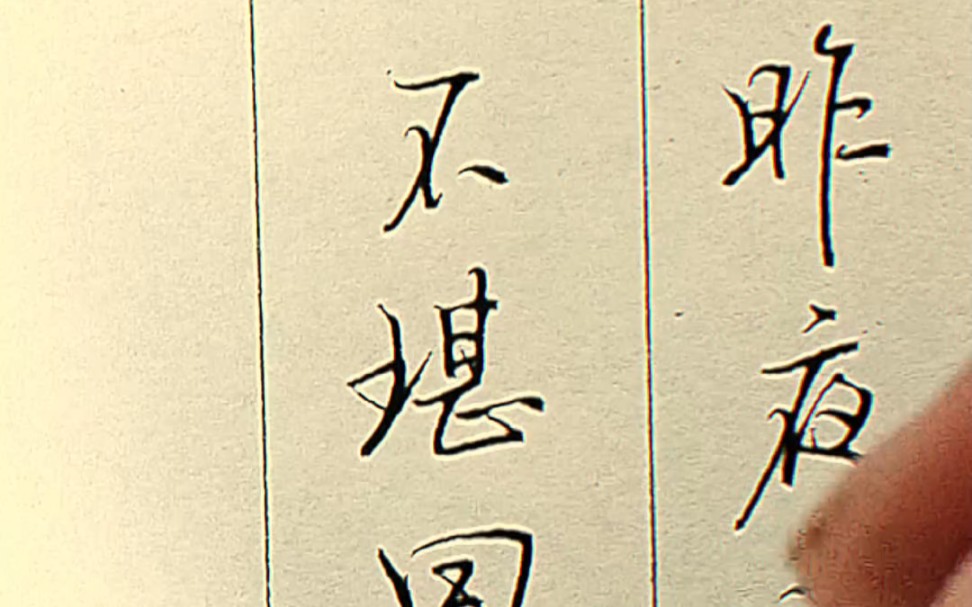 昨夜
不堪回